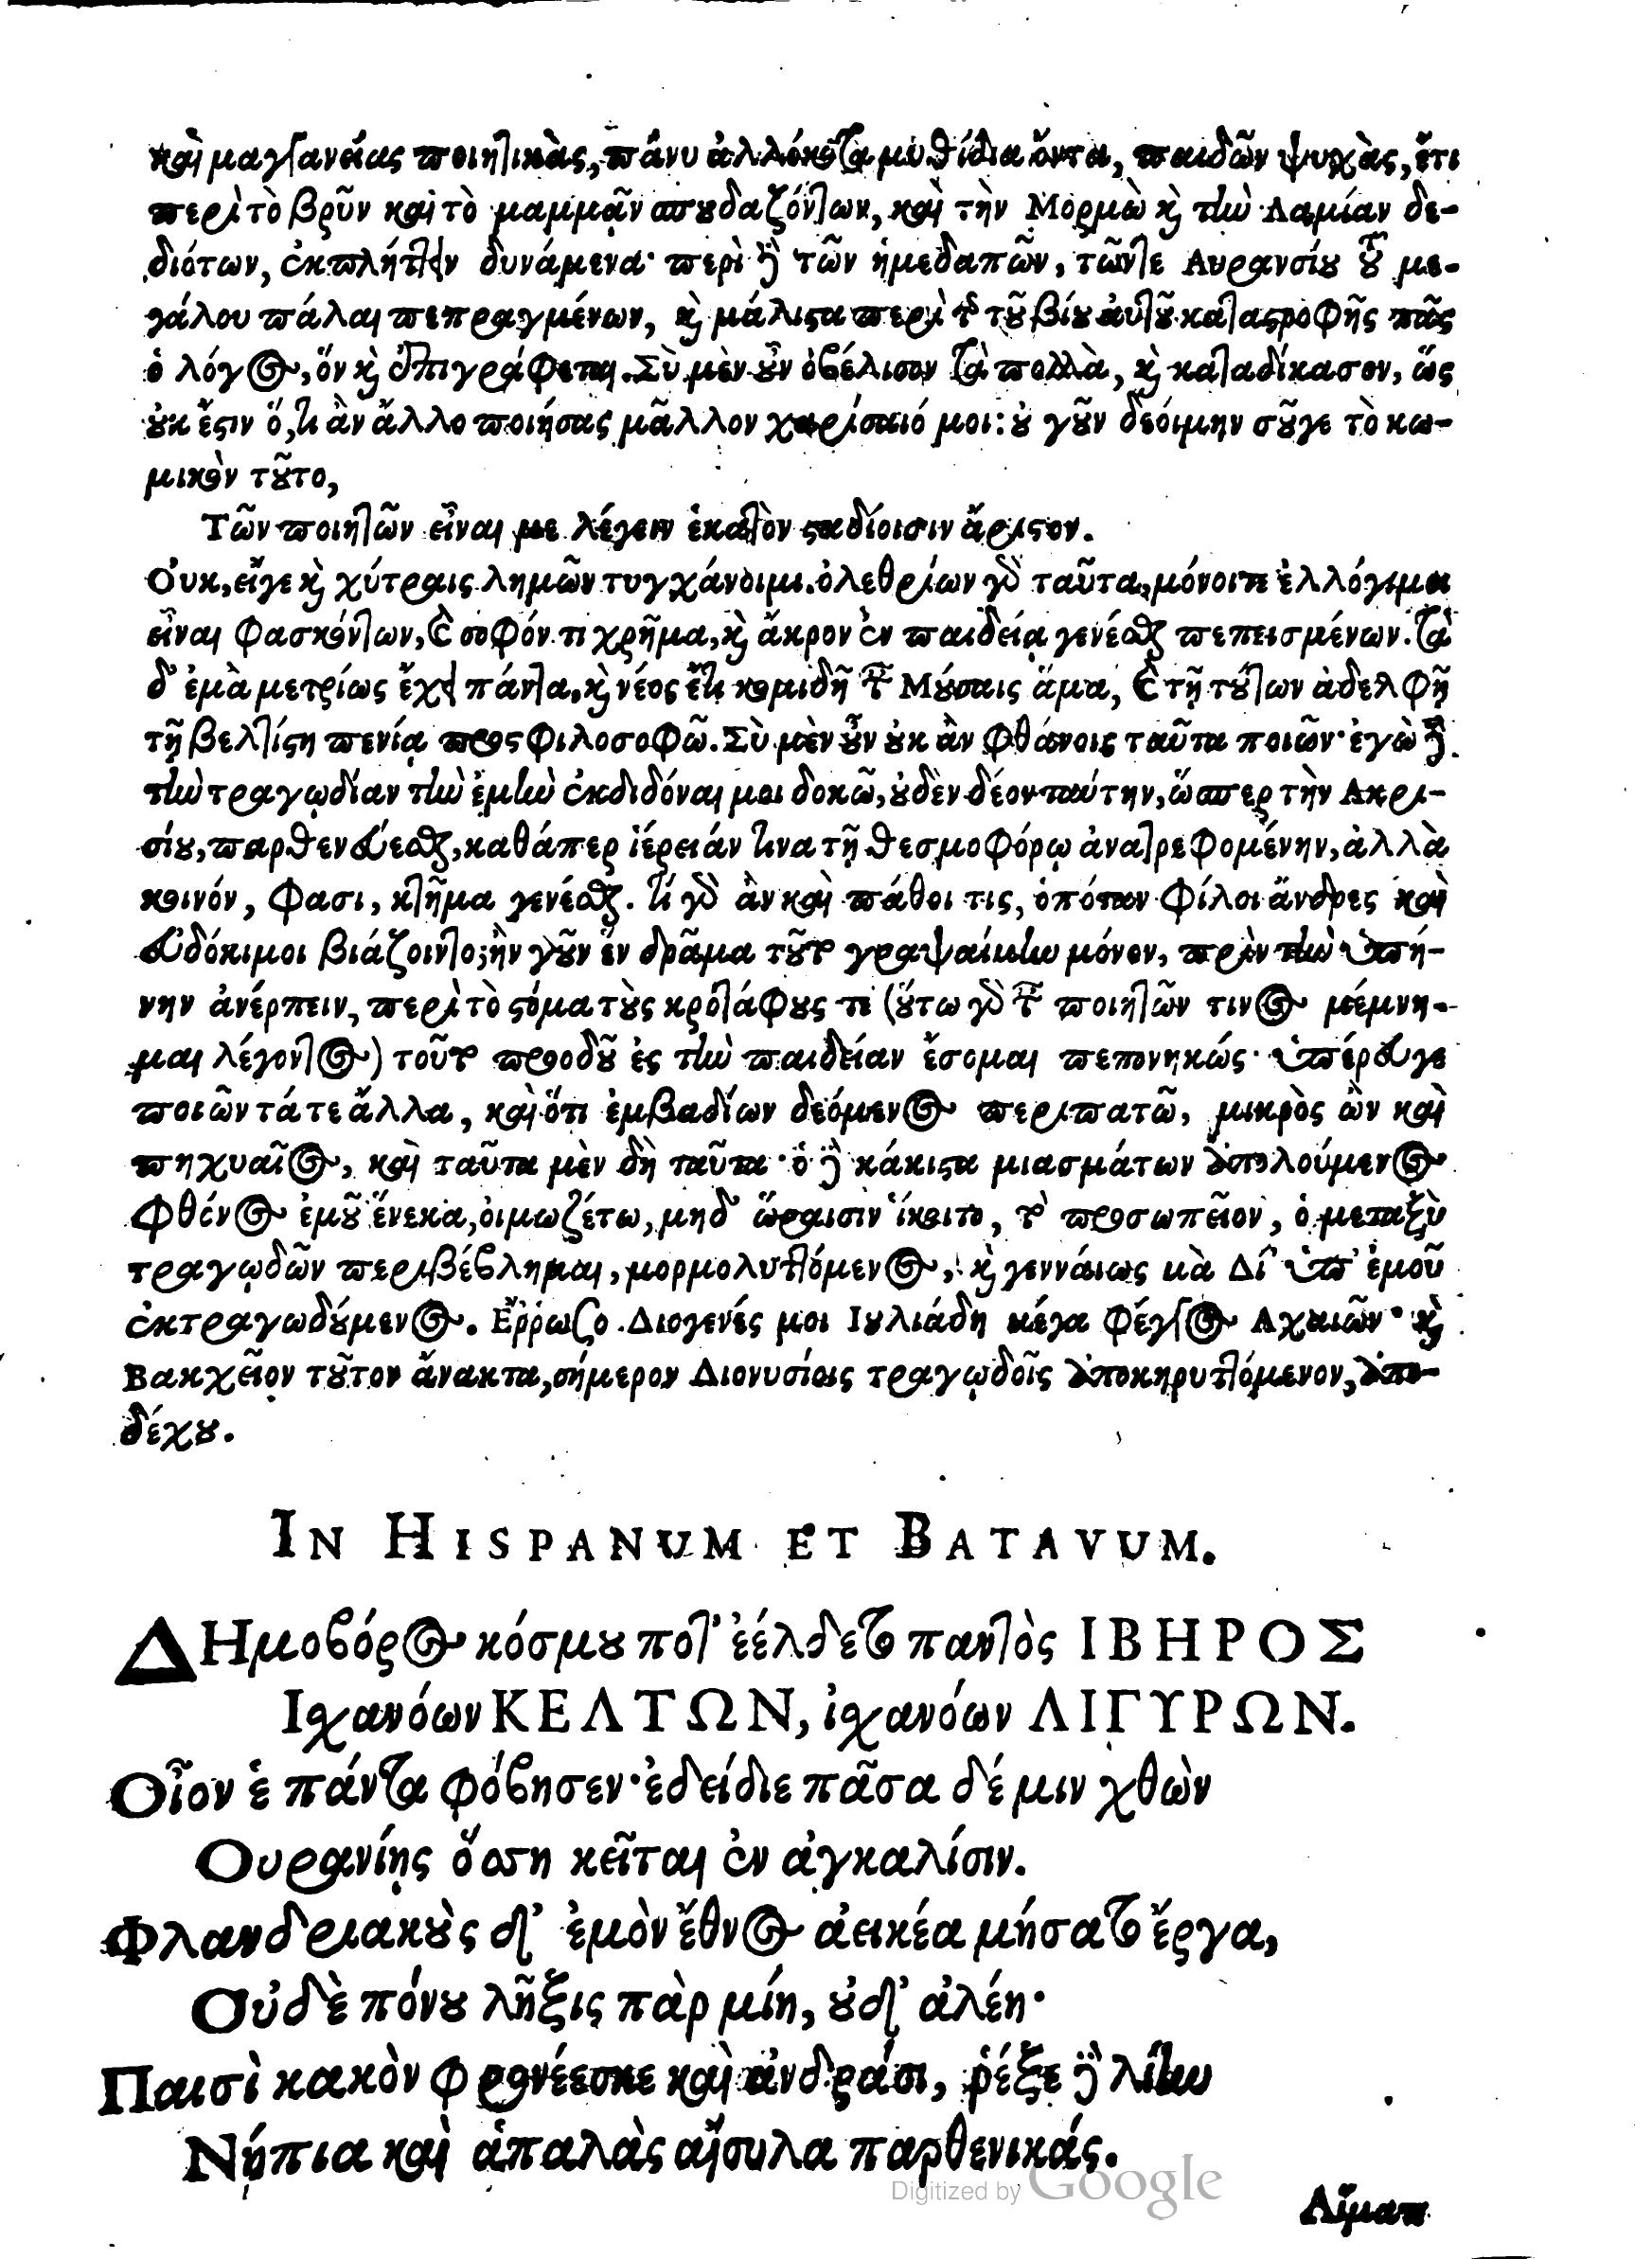 καὶ μαγγανείας ποιητικὰς, πάνυ ἀλλόκοτα μυθίδια ὄντα, παιδῶν ψυχὰς, ἔτι
περὶ τὸ βρῦν καὶ τὸ μαμμᾶν σπουδαζόντων, καὶ τὴν Μορμὼ καὶ τὴν Λαμίαν δε-
διότων, ἐκπλήττειν δυνάμενα· περὶ δὲ τῶν ἡμεδαπῶν, τῶντε Αυρανσίου τοῦ με-
γάλου πάλαι πεπραγμένων, καὶ μάλιστα περὶ τῆς τοῦ βίου αυτοῦ καταστροφῆς πᾶς
ὁ λόγος, ὅν καὶ ἐπιγράφεται. Σὺ μὲν οὖν ὀβέλισον τὰ πολλὰ, καὶ καταδίκασον, ὥς
οὐκ ἔστιν ὅ, τι ἂν ἄλλο ποιήσας μᾶλλον χαρίσαιό μοι: οὐ γοῦν δεόιμην σοῦγε τὸ κω-
μικὸν τοῦτο,
Τῶν ποιητῶν εἶναι με λέγειν ἑκατὸν σταδίοισιν ἄριστον.
Οὐκ, εἴγε καὶ χύτραις λημῶν τυγχάνοιμι. ὀλεθρίων γὸ ταῦτα, μόνοιτε ἐλλόγιμοι
εἶναι φασκόντων, καὶ σοφόν τι χρῆμα, καὶ ἄκρον ἐν παιδείᾳ γενέσθαι πεπεισμένων. τὰ
δ' ἐμὰ μετρίως ἔχει πάντα, καὶ νέος ἔτι κομιδῆ ταῖς Μούσαις ἅμα, καὶ τῇ τούτων ἀδελφῇ
τῇ βελτίστῃ πενίᾳ προσφιλοσοφῶ. Σὺ μὲν οὖν οὐκ ἂν φθάνοις ταῦτα ποιῶν· ἐγὼ δὲ
τὴν τραγῳδίαν τὴν ἐμὴν ἐκδιδόναι μοι δοκῶ, οὐδὲν δέον ταύτην, ὥσπερ τὴν Ακρι-
σίου, παρθενεύεσθαι, καθάπερ ἱέρειάν τινα τῇ θεσμοφόρῳ ἀνατρεφομένην, ἀλλὰ
κοινόν, φασι, κτῆμα γενέσθαι. τί γὸ ἂν καὶ πάθοι τις, ὁπόταν φίλοι ἄνδρες καὶ
εὐδόκιμοι βιάζοιντο; ἢν γοῦν ἕν δρᾶμα τοῦτο γραψαίμην μόνον, πρὶν τὴν ὑπή-
νην ἀνέρπειν, περὶ τὸ στόμα τοὺς κροτάφους τε (οὕτω γὸ τῶν ποιητῶν τινος μέμνη-
μαι λέγοντος) τοῦτο προοδοῦ ἐς τὴν παιδείαν ἔσομαι πεπονηκώς· ὑπέρευγε
ποιῶν τάτε ἄλλα, καὶ ὅτι ἐμβαδίων δεόμενος περιπατῶ, μικρὸς ὢν καὶ
πηχυαῖος, καὶ ταῦτα μὲν δὴ ταῦτα· ὁ δὲ κάκιστα μιασμάτων ἀπολούμενος
Φθόνος ἐμοῦ ἕνεκα, οἰμωζέτω, μηδ' ὥραισιν ἵκοιτο, τὸ προσωπεῖον, ὁ μεταξὺ
τραγῳδῶν περιβέβλημαι, μορμολυττόμενος, καὶ γενναίως μὰ Δί' ὑπ' ἐμοῦ
ἐκτραγωδούμενος. Ἔρρωσο. Διογενές μοι Ιουλιάδη μέγα φέγγος Αχαιῶν· καὶ
Βακχεῖον τοῦτον ἄνακτα, σήμερον Διονυσίοις τραγῳδοῖς ἀποκηρυττόμενον, ἀπο-
δέχου.
IN HISPANUM ET BATAVUM.
ΔΗμοβόρος κόσμου ποτ' ἐέλδετο παντὸς ΙΒΗΡΟΣ
Ιχανόων ΚΕΛΤΩΝ, ἰχανόων ΛΙΓΥΡΩΝ.
Οἷον ἑ πάντα φόβησεν· ἐδείδιε πᾶσα δέ μιν χθὼν
Ουρανίης ὅση κεῖται ἐν ἀγκαλίσιν.
Φλανδριακοὺς δ' ἐμὸν ἔθνος ἀεικέα μήσατο ἔργα,
Οὐδὲ πόνου λῆξις πὰρ μίη, οὐδ' ἀλέη·
Παισὶ κακὸν φρονέεσκε καὶ ἀνδράσι, ῥέξε δὲ λίην
Νήπια καὶ ἁπαλὰς αἴσυλα παρθενικάς.
Αἵματι
Digitized by Google